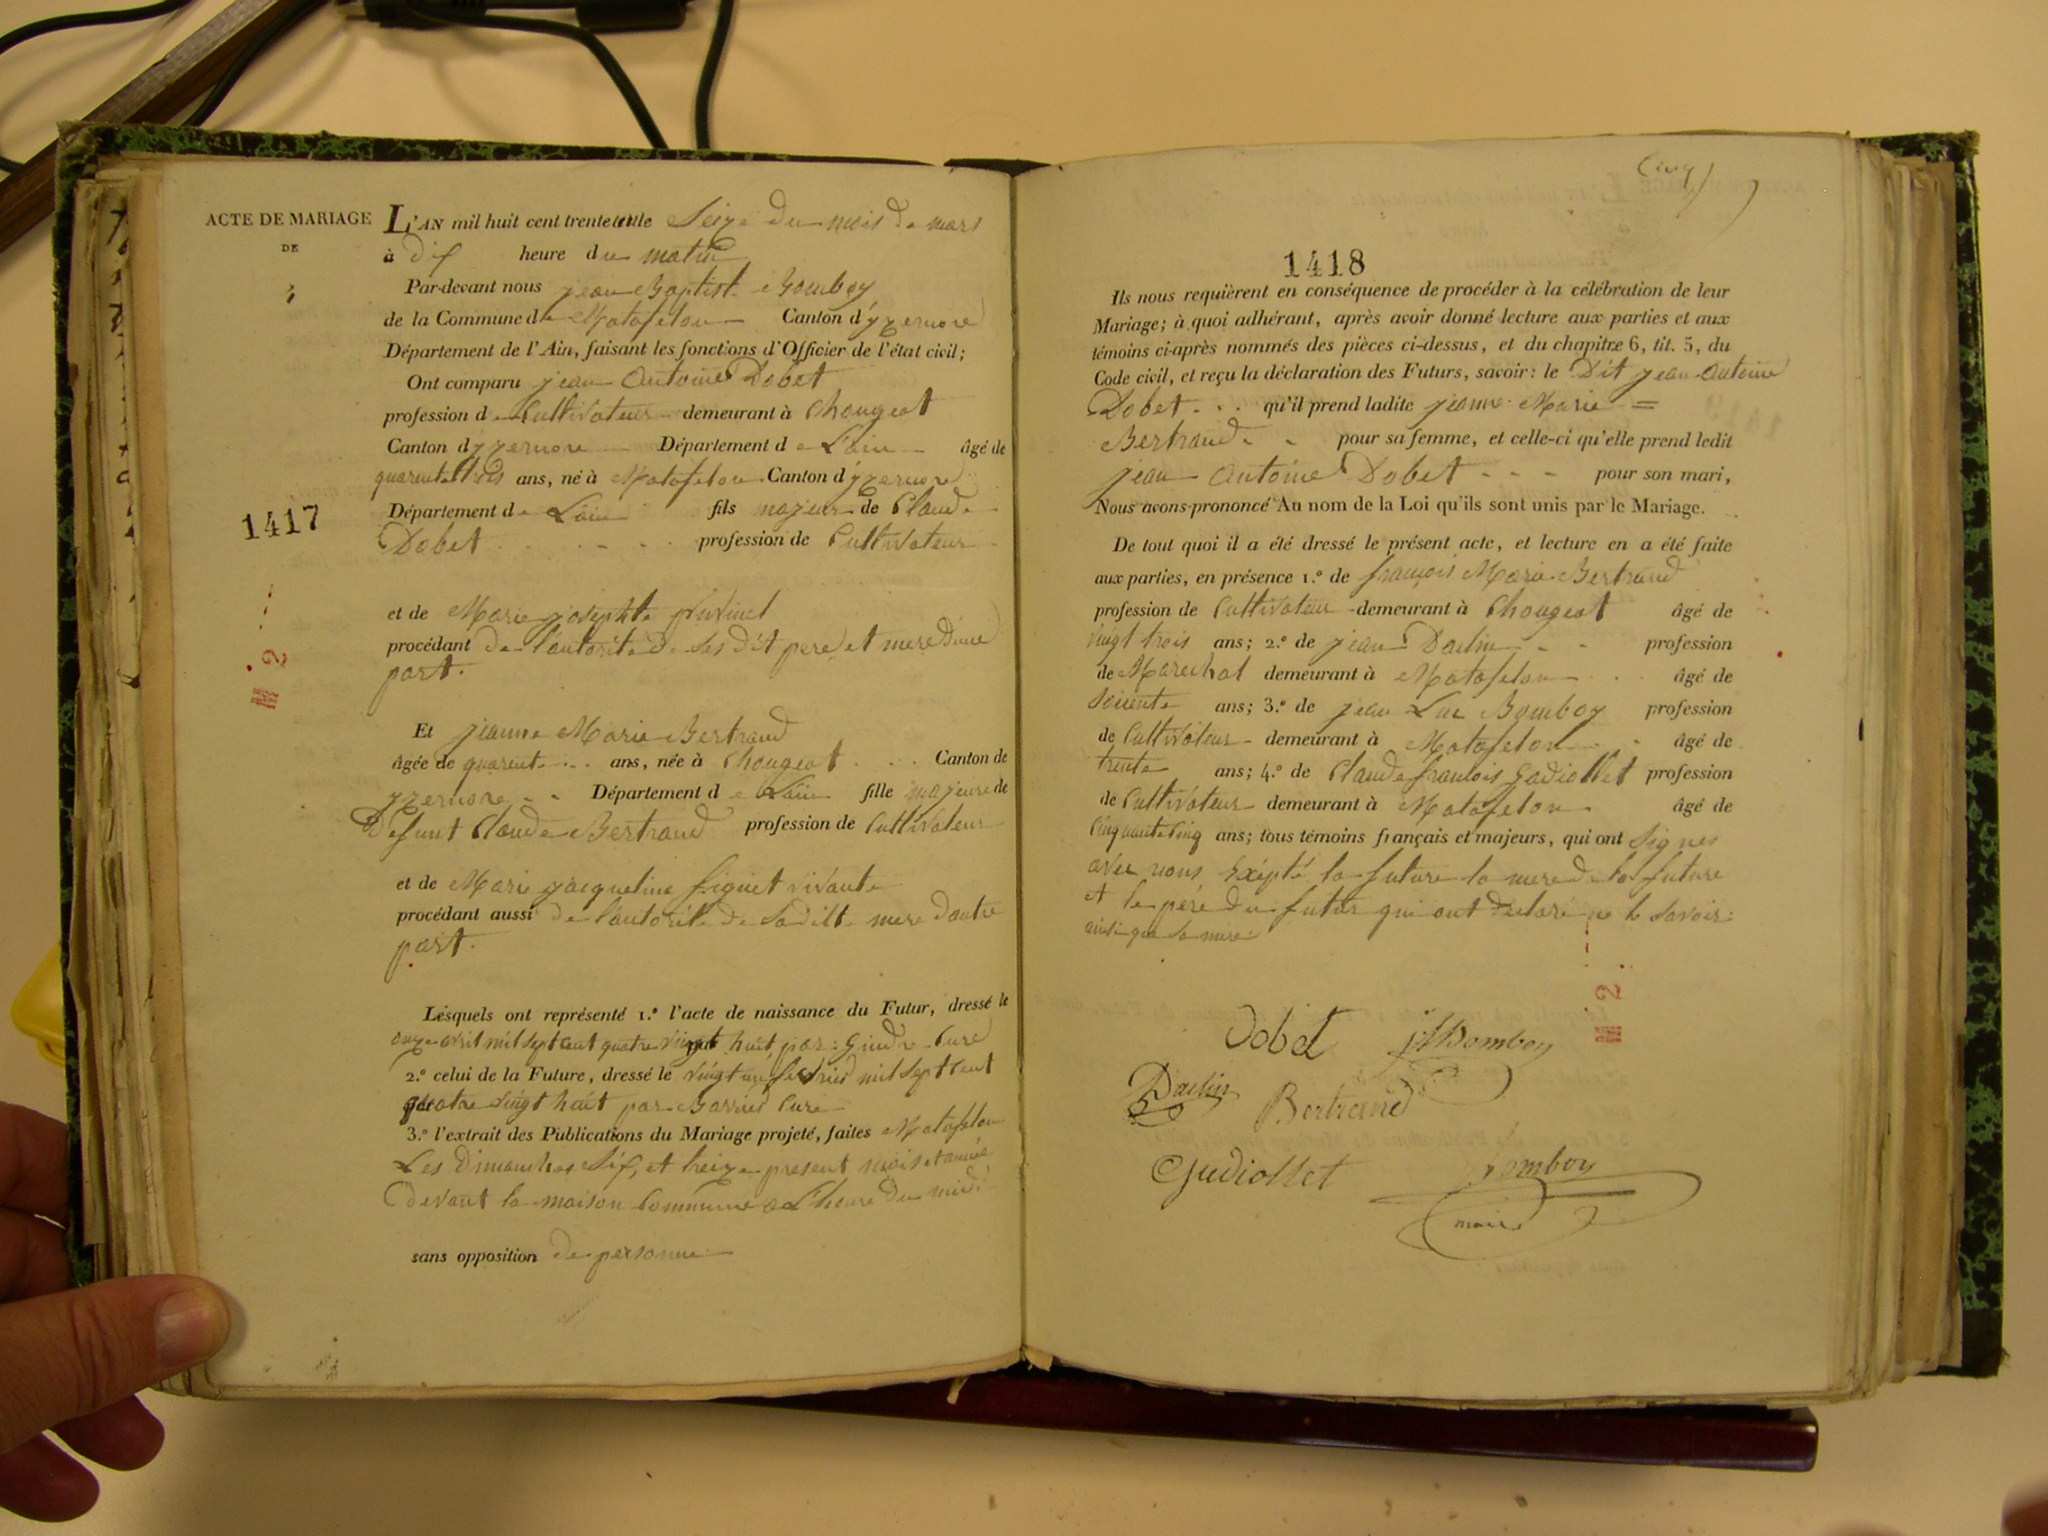 ACTE DE MARIAGE
DE
L'AN mil huit cent trente le Seize du mois de mars
à dix heure du matin
Par-devant nous jean Baptist Bomboy
de la Commune de Matafelon Canton d'yzernore
Département de l'Ain, faisant les fonctions d'Officier de l'état civil;
Ont comparu jean Antoine Dobet
profession de Cultivateur demeurant à Chougeat
Canton d'yzernore Département de L'ain âgé de
quarente trois ans, né à Matafelon Canton d'yzernore
Département de L'ain fils majeur de Claude
1417
Dobet profession de Cultivateur
et de Marie josephte
procédant de l'autorité de ses dit pere et mere d'une
part.
Et jeanne Marie Bertrand
âgée de quarente ans, née à Chougeat Canton de
yzernore Département de L'ain fille majeure de
Defunt Claude Bertrand profession de Cultivateur
et de Marie jacqueline vivante
procédant aussi de l'autorité de Sadite mere dautre
part.
Lesquels ont représenté 1.º l'acte de naissance du Futur, dressé le
onze avril mil sept cent quatre vingt huit par Curé
2.º celui de la Future, dressé le vingt un mil sept cent
quatre vingt huit par Curé
3.º l'extrait des Publications du Mariage projeté, faites Matafelon
Les Dimanches Six, et treize present mois et année
Devant la maison Commune a L'heure du midi
sans opposition de personne
1418
Ils nous requièrent en conséquence de procéder à la célébration de leur
Mariage; à quoi adhérant, après avoir donné lecture aux parties et aux
témoins ci-après nommés des pièces ci-dessus, et du chapitre 6, tit. 5, du
Code civil, et reçu la déclaration des Futurs, savoir: le Dit jean Antoine
Dobet qu'il prend ladite jeanne Marie =
Bertrand pour sa femme, et celle-ci qu'elle prend ledit
jean Antoine Dobet pour son mari,
Nous avons prononcé Au nom de la Loi qu'ils sont unis par le Mariage.
De tout quoi il a été dressé le présent acte, et lecture en a été faite
aux parties, en présence 1.º de françois Marie Bertrand
profession de Cultivateur demeurant à Chougeat âgé de
vingt trois ans; 2.º de jean profession
de Marechal demeurant à Matafelon âgé de
ans; 3.º de jean Luc Bomboy profession
de Cultivateur demeurant à Matafelon âgé de
trente ans; 4.º de Claude françois Gadiollet profession
de Cultivateur demeurant à Matafelon âgé de
Cinquante Cinq ans; tous témoins français et majeurs, qui ont Signes
avec nous Exépté la future la mere de la future
et le pere du futur qui ont declaré ne le savoir
ainsi que sa mere
Dobet Bomboy
Bertrand
Gudiollet Bomboy
maire